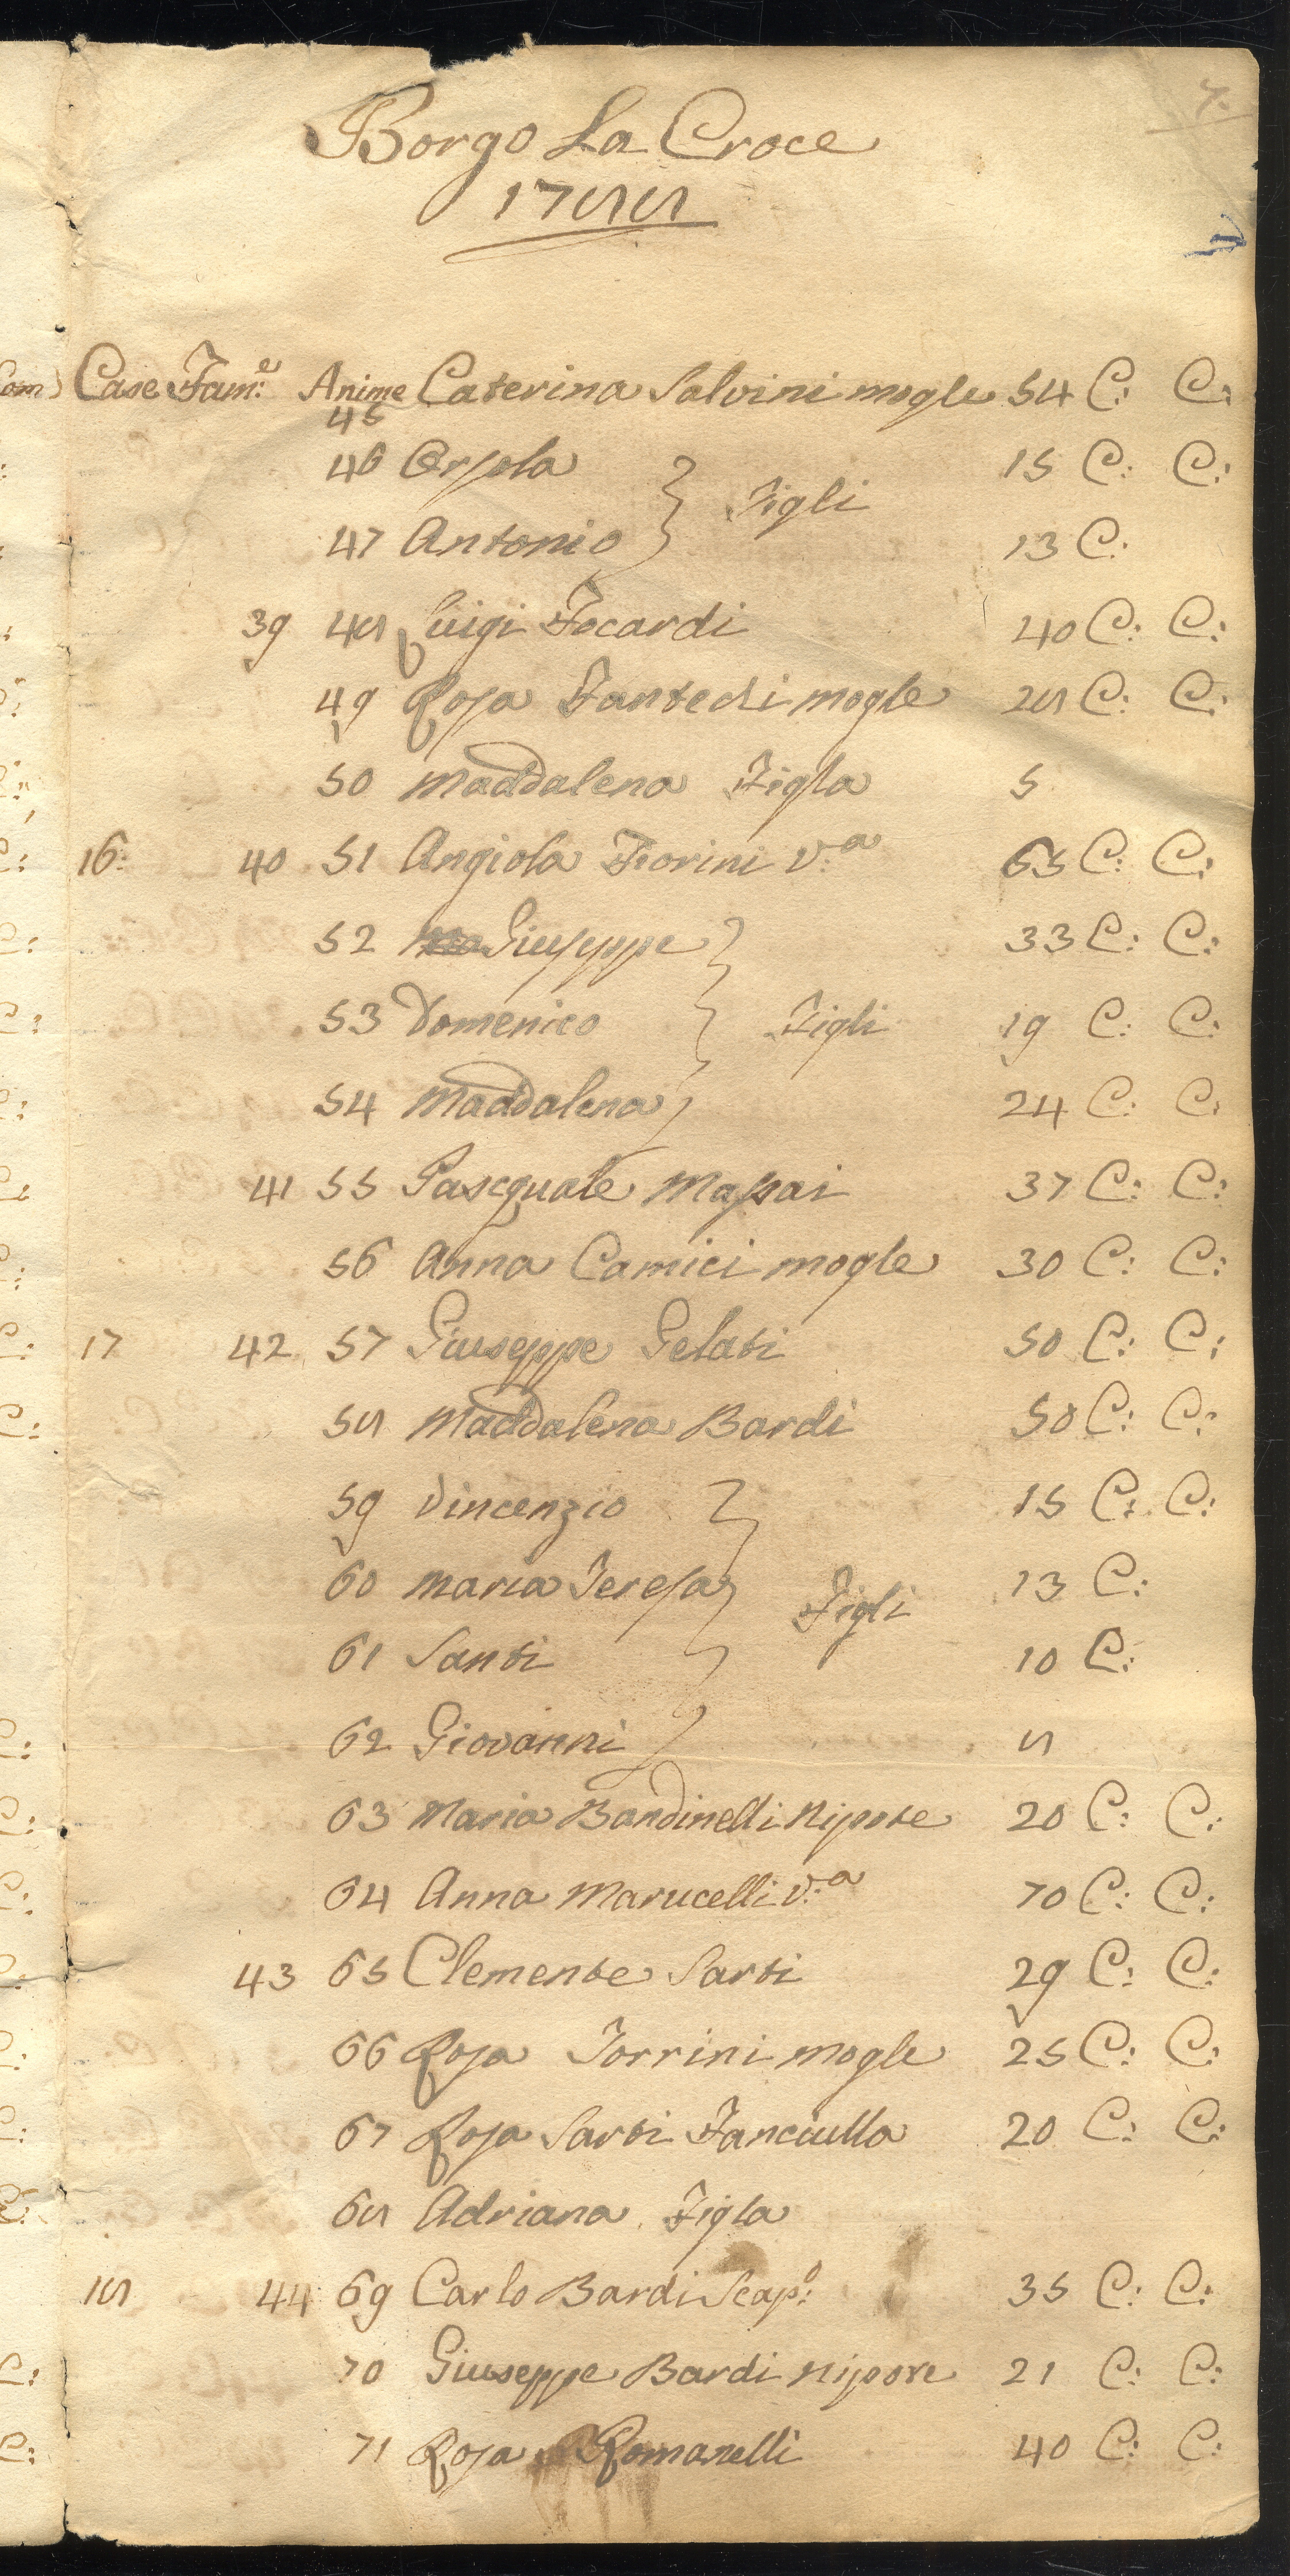 7.
Borgo La Croce
1788
Case Fam:e Anime Caterina Salvini mogle 54 C: C:
45
46 Orsola 15 C: C:
Figli
47 Antonio 13 C:
39 48 Luigi Focardi 40 C: C:
49 Rosa Fantechi mogle 28 C: C:
50 Maddalena Figla 5
16: 40 51 Angiola Fiorini v:a 65 C: C:
52 Giuseppe 33 C: C:
53 Domenico Figli 19 C: C:
54 Maddalena 24 C: C:
41 55 Pasquale Massai 37 C: C:
56 Anna Camici mogle 30 C: C:
17 42 57 Giuseppe Gelati 50 C: C:
58 Maddalena Bardi 50 C: C:
59 Vincenzio 15 C: C:
60 Maria Teresa 13 C:
Figli
61 Santi 10 C:
62 Giovanni 8
63 Maria Bandinelli Nipote 20 C: C:
64 Anna Marucelli v:a 70 C: C:
43 65 Clemente Sarti 29 C: C:
66 Rosa Torrini mogle 25 C: C:
67 Rosa Sarti Fanciulla 20 C: C:
68 Adriana Figla
18 44 69 Carlo Bardi Scap:o 35 C: C:
70 Giuseppe Bardi nipote 21 C: C:
71 Rosa Romanelli 40 C: C: